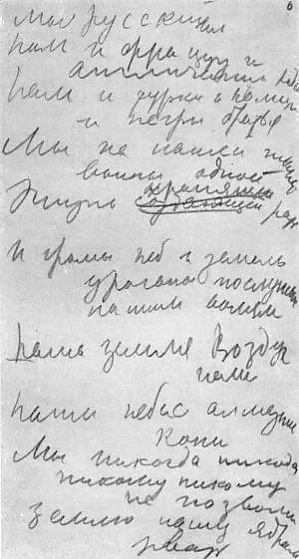 6
нам и француз и
англичанин
нам и турки и немцы
и негры братья
Мы на
воины одной
Жизнь создающей рати
И громы неб и земель
ураганы послушны
нашим волям
Наша земля Воздух
наш
наши небес алмазные
Копи
Мы никогда никогда
никому никому
не позволим
землю нашу ядрами
рвать